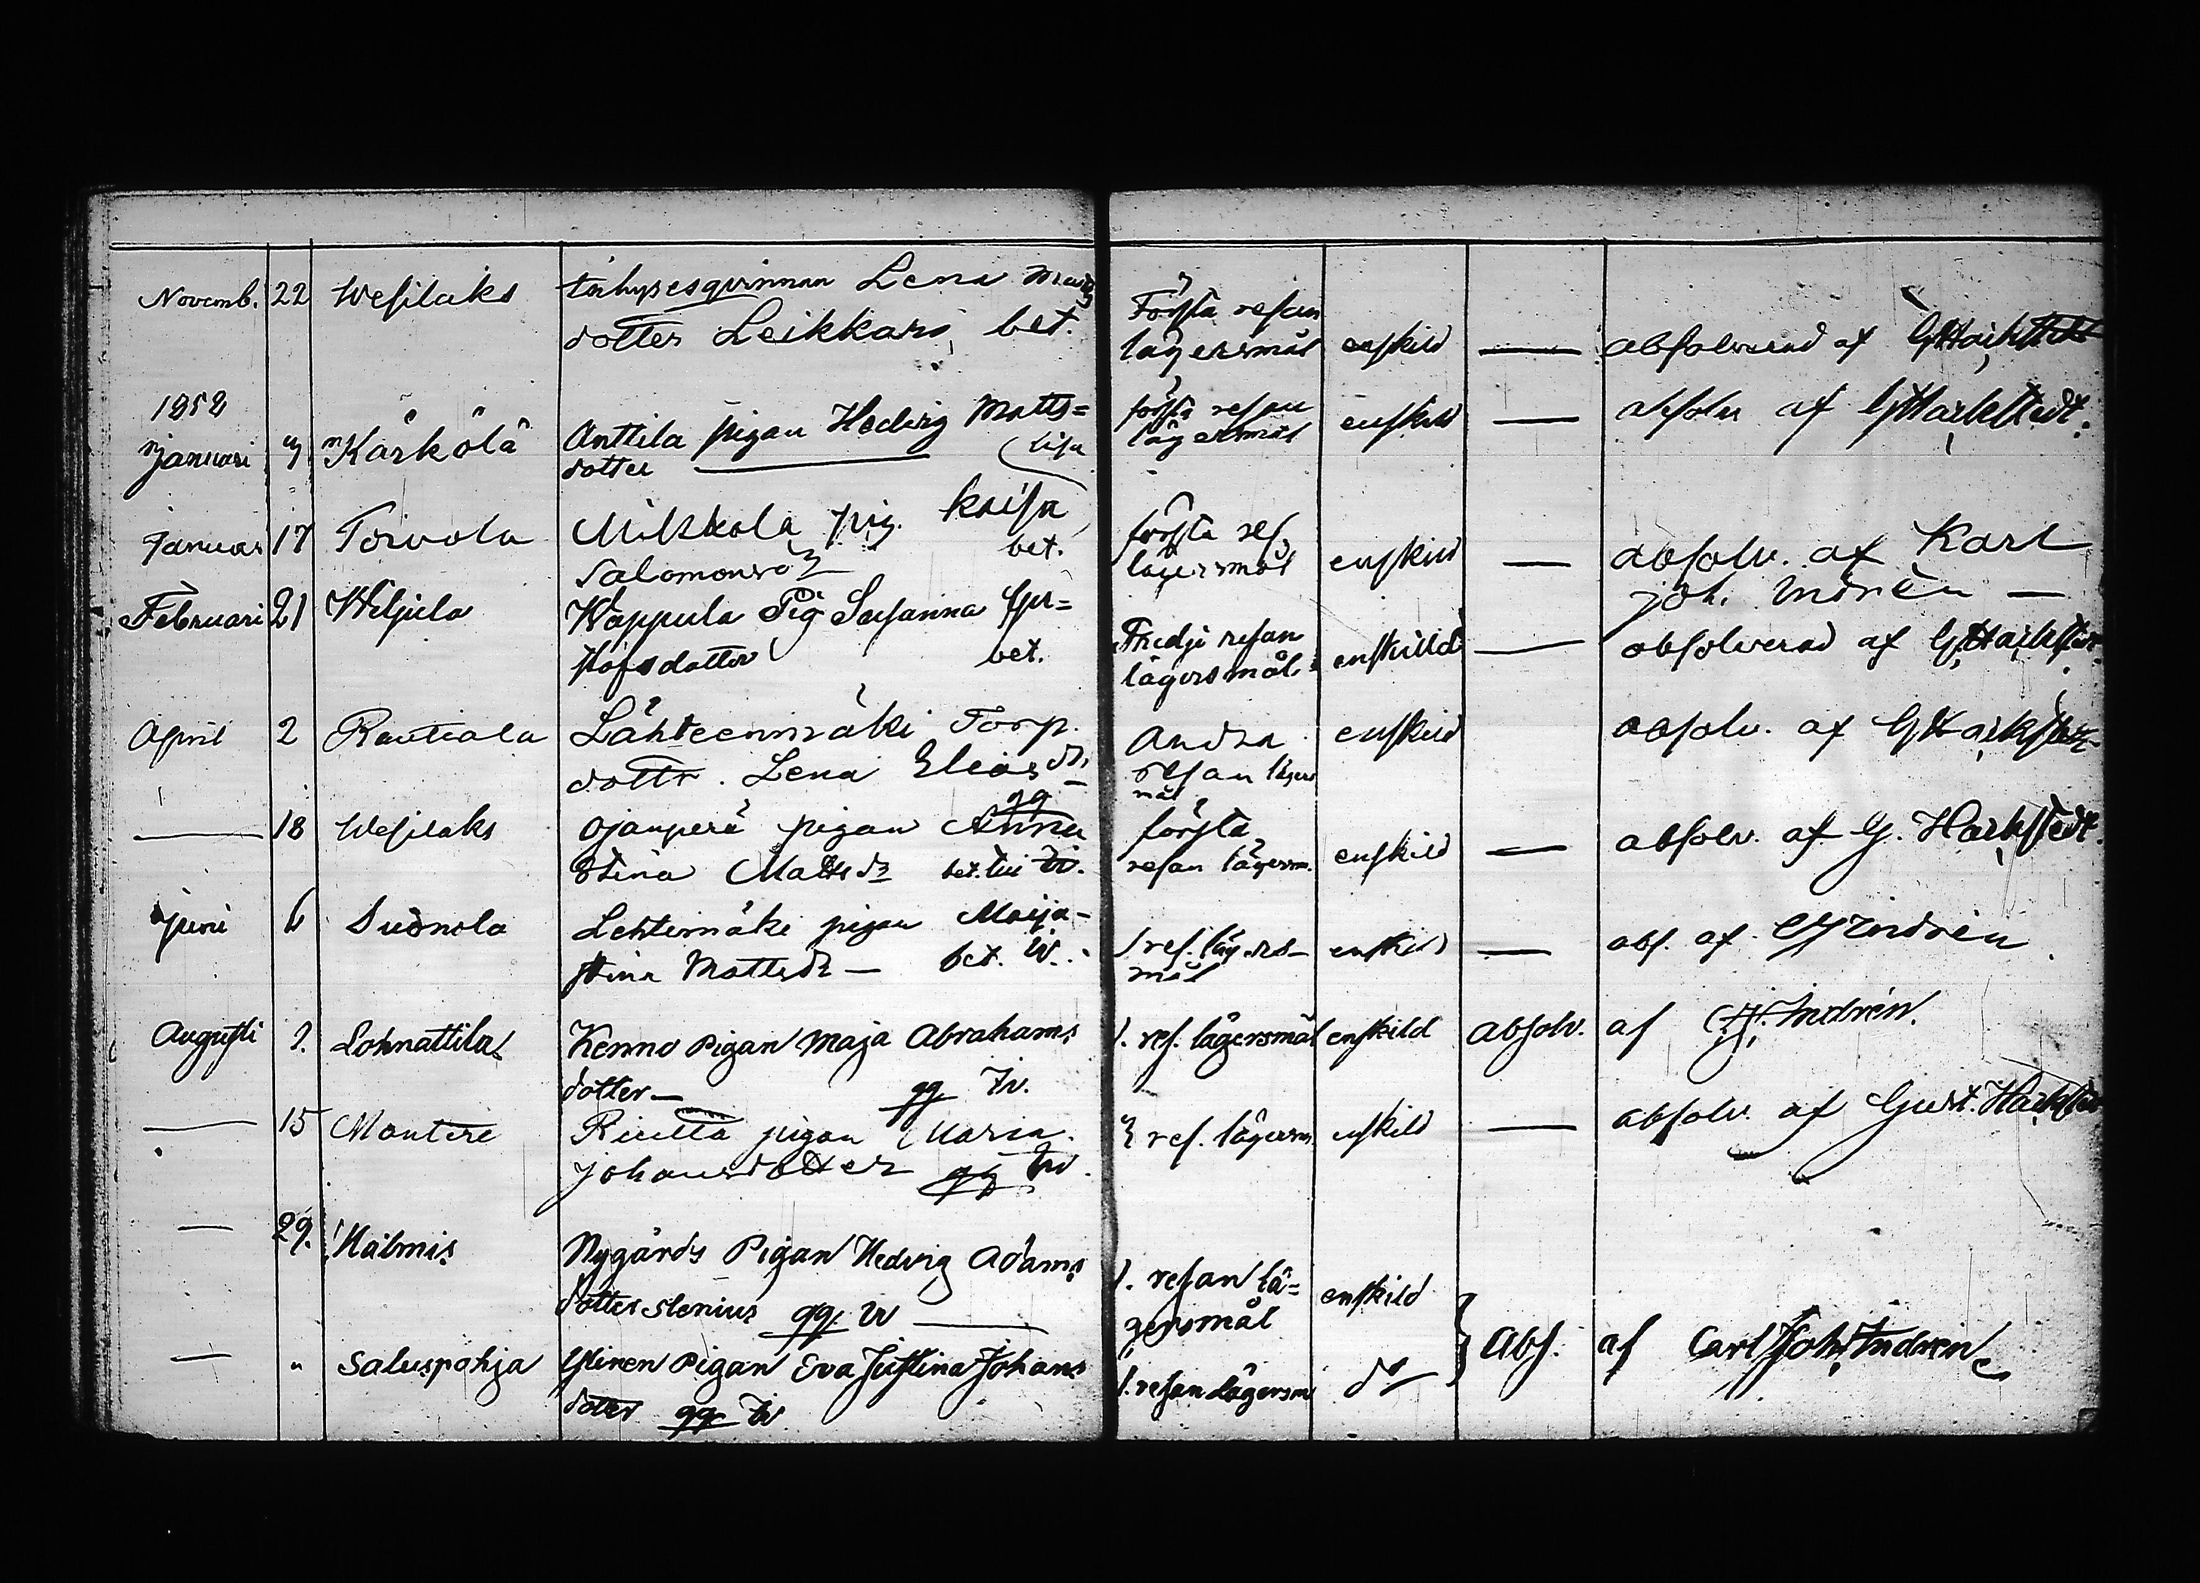 Novemb. 22 Wesilaks inhysesqvinnan Lena Matts
dotter Leikkari bet. Första resan
lägersmål enskild — absolverad af G Harkstedt
1852
Januari Kärkölä Anttila pigan Hedvig Matts=
dotter Lisa första resan
lägersmål enskild — absolv af G Harkstedt.
Januar 17 Toivola Mikkola pig. Kaisa
Salomonsdr bet. första res.
lägersmål enskild — absolv. af Karl
Joh. Indrén —
Februari 21 Wiljula Wappula Pig Susanna
dotter bet. Tredje resan
lägersmål enskilld — absolverad af G Harkstedt
April 2 Rautiala Lähteenmäki Torp.
dottr. Lena Eliasdr Andra
resan lägers
mål enskild absolv. af G Harkstedt
— 18 Wesilaks Ojanperä pigan Anna
Stina Mattsdr bet. första
resan lägersm. enskild — absolv. af G. Harkstedt.
Juni 6 Suonola Lehtimäki pigan Maija-
stina Mattsdr — bet. 1 res. lägers-
mål enskild — abs. af CJ Indrén
Augusti Lohnattila Kenno Pigan Maja Abrahams
dotter — qq 1. res. lägersmål enskild absolv. af CJ. Indrén.
— 15 Mantere Riutta pigan Maria
Johansdotter qq res. lägersm enskild — absolv. af Gust. Harkstedt
— 29. Halmis Nygårds Pigan Hedvig Adams
dotter Slenius qq. — 1. resan lä=
gersmål enskild
— " Saluspohja Yliren Pigan Eva Justina Johans
dotter qq 1. resan Lägersm do Abs. af Carl Joh. Indrén